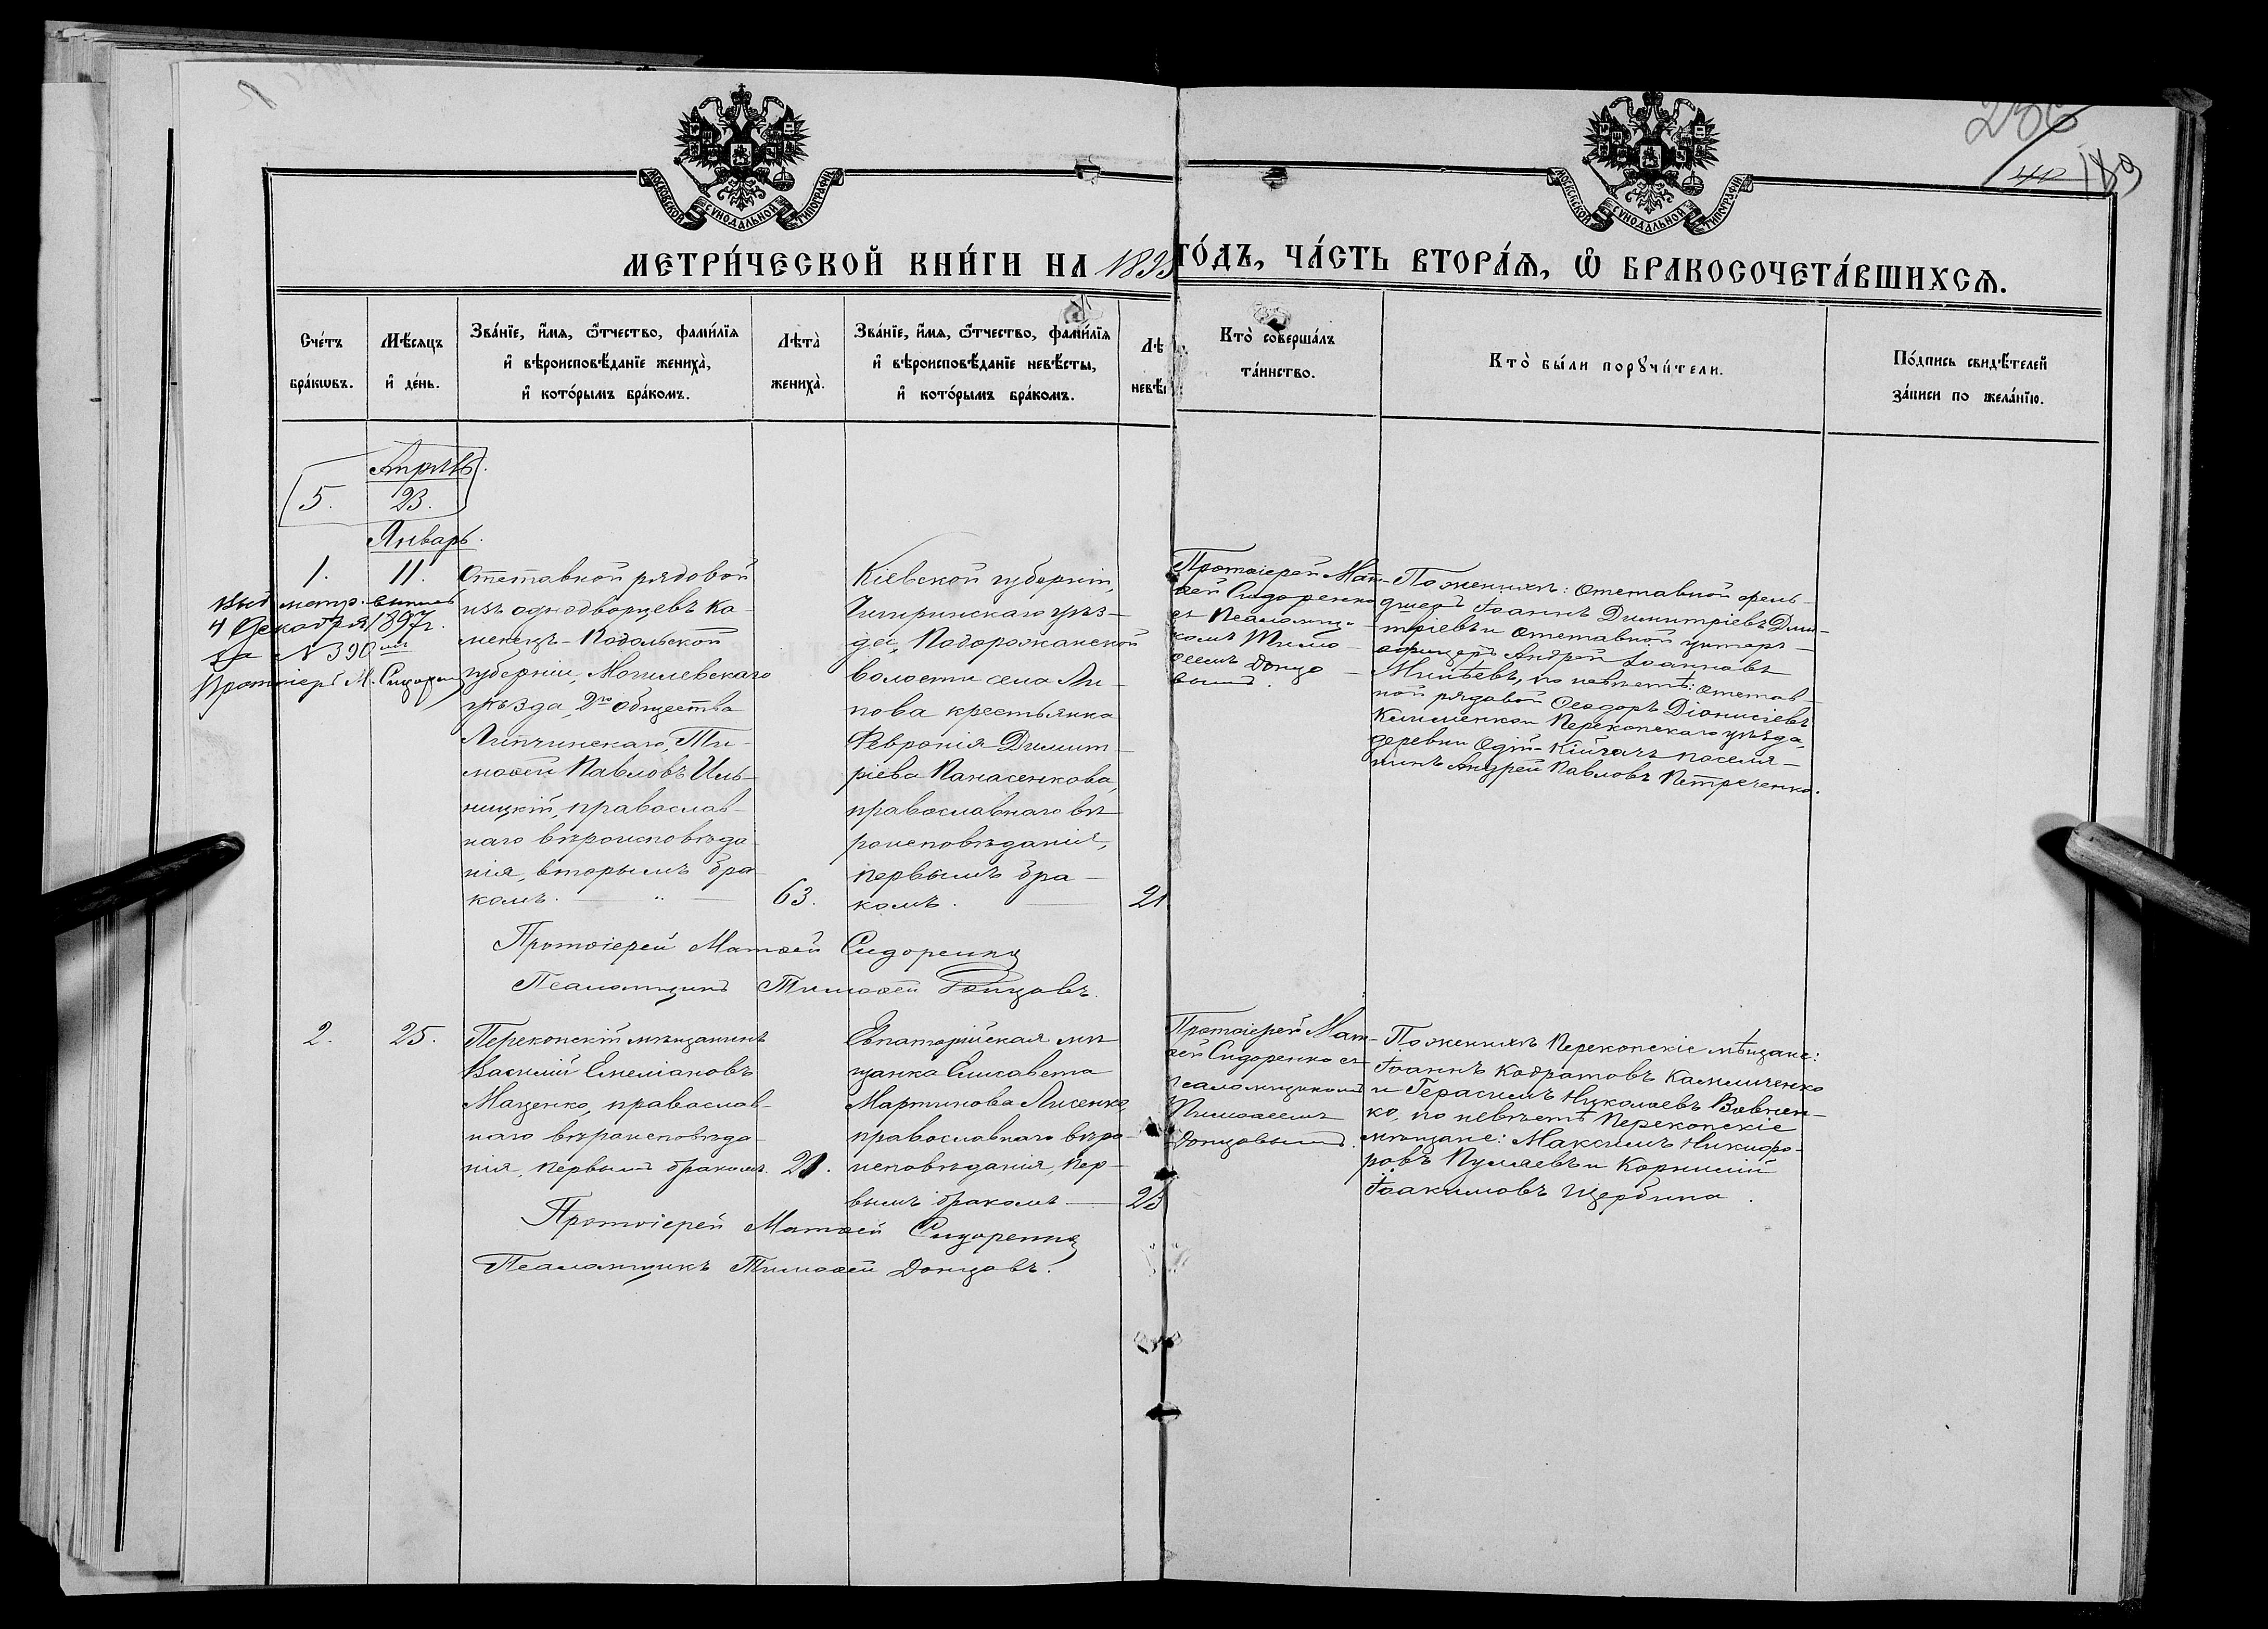 236
40 189
МОСКОВСКОЙ СУНОДАЛЬНОЙ ТИПОГРАФИИ
МОСКОВСКОЙ СУНОДАЛЬНОЙ ТИПОГРАФИИ
МЕТРИ́ЧЕСКОЙ КНИ́ГИ НА 1895 ГО́ДЪ, ЧА́СТЬ ВТОРА́Ѧ, Ѡ҆ БРАКОСОЧЕТА́ВШИХСѦ.
Сче́тъ
бра́кѡвъ.
Мѣ́сяцъ
и҆ де́нь.
Зва́нїе, и҆́мя, ѻ҆́тчество, фами́лїя
и҆ вѣроисповѣ́данїе жениха̀,
и҆ кото́рымъ бра́комъ.
Лѣта̀
жениха̀.
Зва́нїе, и҆́мя, ѻ҆́тчество, фами́лїя
и҆ вѣроисповѣ́данїе невѣ́сты,
и҆ кото́рымъ бра́комъ.
Лѣ
невѣ́
Кто̀ соверша́лъ
та́инство.
Кто̀ бы́ли порꙋчи́тели.
По́дпись свидѣ́телей
за́писи по жела́нїю.
Апрѣль.
5. 23.
Январь.
1. 11.
Выд. метр. выпись
4 Декабря 1897 г.
за N 390
Протоіерей М. Сидоренко
Отставной рядовой
изъ однодворцевъ Ка-
менецъ-Подольской
губерніи, Могилевскаго
уѣзда, 2го общества
Липчинскаго, Ти-
моѳей Павловъ Иль-
ницкій, православ-
наго вѣроисповѣда-
нія, вторымъ бра-
комъ.
63.
Кіевской губерніи,
Чигиринскаго уѣз-
да, Подорожанской
волости села Ли-
пова крестьянка
Февронія Димит-
ріева Панасенкова,
православнаго вѣ-
роисповѣданія,
первымъ бра-
комъ.
21.
Протоіерей Мат-
ѳей Сидоренко
съ Псаломщи-
комъ Тимо-
ѳеемъ Донцо-
вымъ.
По женихѣ: Отставной фель-
дшеръ Іоаннъ Димитріевъ Дми-
тріевъ и отставной унтеръ-
офицеръ Андрей Іоанновъ
Михѣевъ, по невѣстѣ: отстав-
ной рядовой Ѳеодоръ Діонисіевъ
Клименко и Перекопскаго уѣзда,
деревни Кійчакъ поселя-
нинъ Андрей Павловъ Петреченко.
Протоіерей Матѳей Сидоренко
Псаломщикъ Тимоѳей Донцовъ.
2. 25.
Перекопскій мѣщанинъ
Василій Емеліановъ
Маценко, православ-
наго вѣроисповѣда-
нія, первымъ бракомъ.
21.
Евпаторійская мѣ-
щанка Елисавета
Мартинова Лисенко,
православнаго вѣро-
исповѣданія, пер-
вымъ бракомъ
25
Протоіерей Мат-
ѳей Сидоренко съ
Псаломщикомъ
Тимоѳеемъ
Донцовымъ.
По женихѣ Перекопскіе мѣщане:
Іоаннъ Кодратовъ Калиниченко
и Герасимъ Николаевъ Вовчен-
ко, по невѣстѣ Перекопскіе
мѣщане: Максимъ Никифо-
ровъ Пуляевъ и Корнилій
Іоакимовъ Щербина.
Протоіерей Матѳей Сидоренко
Псаломщикъ Тимоѳей Донцовъ.